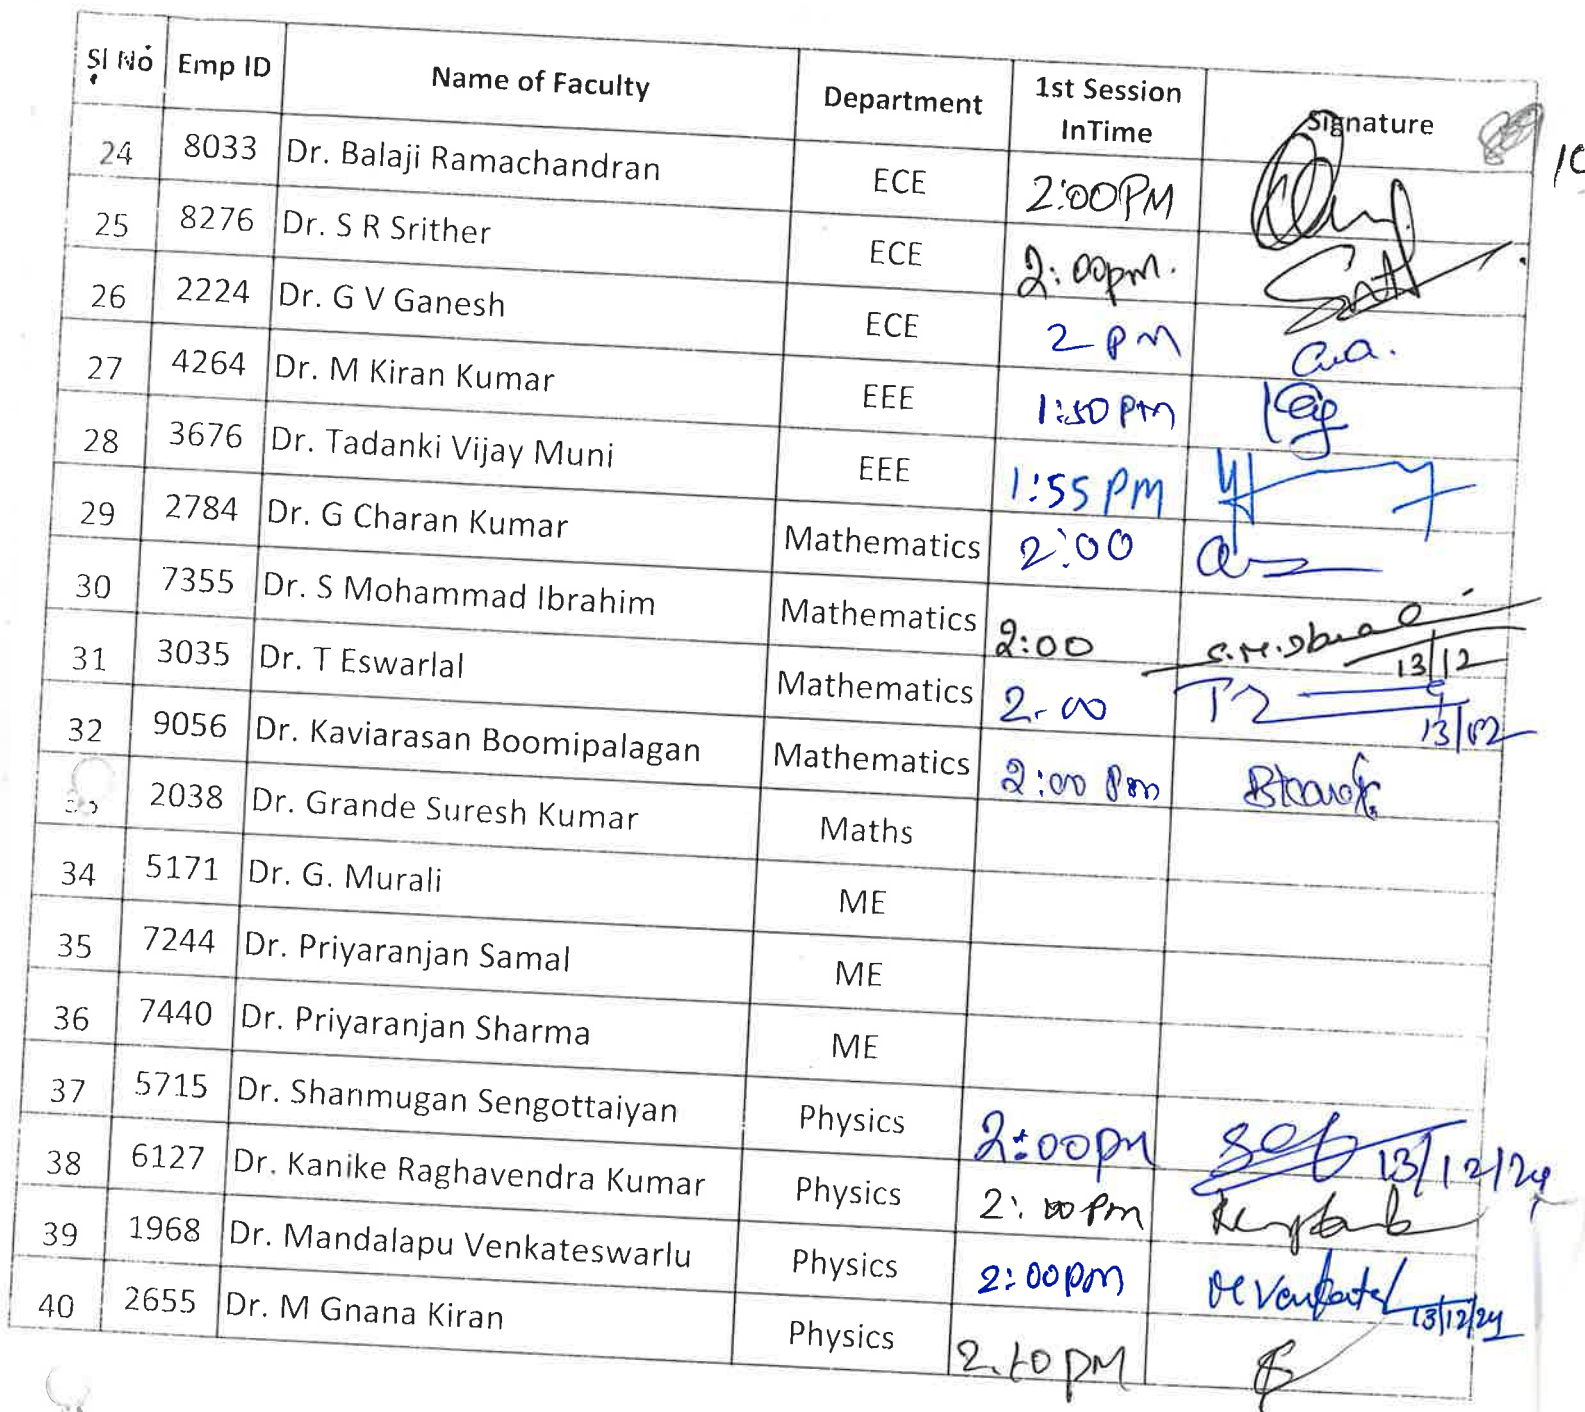 Sl No Emp ID Name of Faculty Department 1st Session InTime Signature
24 8033 Dr. Balaji Ramachandran ECE 2:00PM
25 8276 Dr. S R Srither ECE 2:00pm.
26 2224 Dr. G V Ganesh ECE 2 PM
27 4264 Dr. M Kiran Kumar EEE 1:50 PM
28 3676 Dr. Tadanki Vijay Muni EEE 1:55 PM
29 2784 Dr. G Charan Kumar Mathematics 2:00
30 7355 Dr. S Mohammad Ibrahim Mathematics 2:00 13/12
31 3035 Dr. T Eswarlal Mathematics 2-00 13/12
32 9056 Dr. Kaviarasan Boomipalagan Mathematics 2:00 Pm
2038 Dr. Grande Suresh Kumar Maths
34 5171 Dr. G. Murali ME
35 7244 Dr. Priyaranjan Samal ME
36 7440 Dr. Priyaranjan Sharma ME
37 5715 Dr. Shanmugan Sengottaiyan Physics 2:00pm 13/12/24
38 6127 Dr. Kanike Raghavendra Kumar Physics 2:00pm
39 1968 Dr. Mandalapu Venkateswarlu Physics 2:00pm 13/12/24
40 2655 Dr. M Gnana Kiran Physics 2.10pm